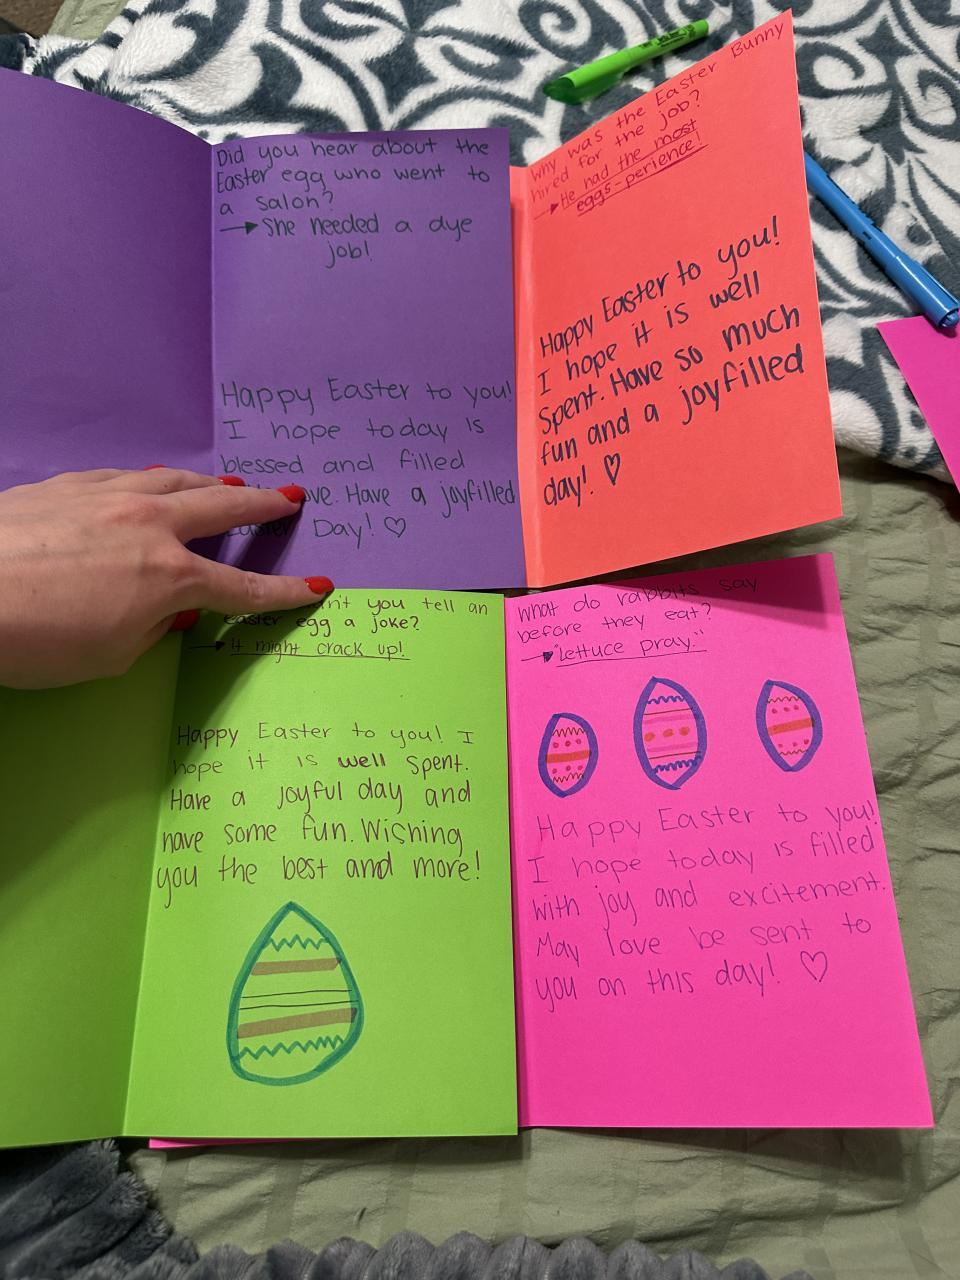 Did you hear about the
Easter egg who went to
a salon?
She needed a dye
job!
Happy Easter to you!
I hope today is
blessed and filled
ove. Have a joyfilled
Easter Day! ♡
Why was the Easter Bunny
hired for the job?
He had the most
eggs-perience!
Happy Easter to you!
I hope it is well
spent. Have so much
fun and a joyfilled
day! ♡
n't you tell an
easter egg a joke?
It might crack up!
Happy Easter to you! I
hope it is well spent.
Have a joyful day and
have some fun. Wishing
you the best and more!
What do rabbits say
before they eat?
"Lettuce pray."
Happy Easter to you!
I hope today is filled
with joy and excitement.
May love be sent to
you on this day! ♡